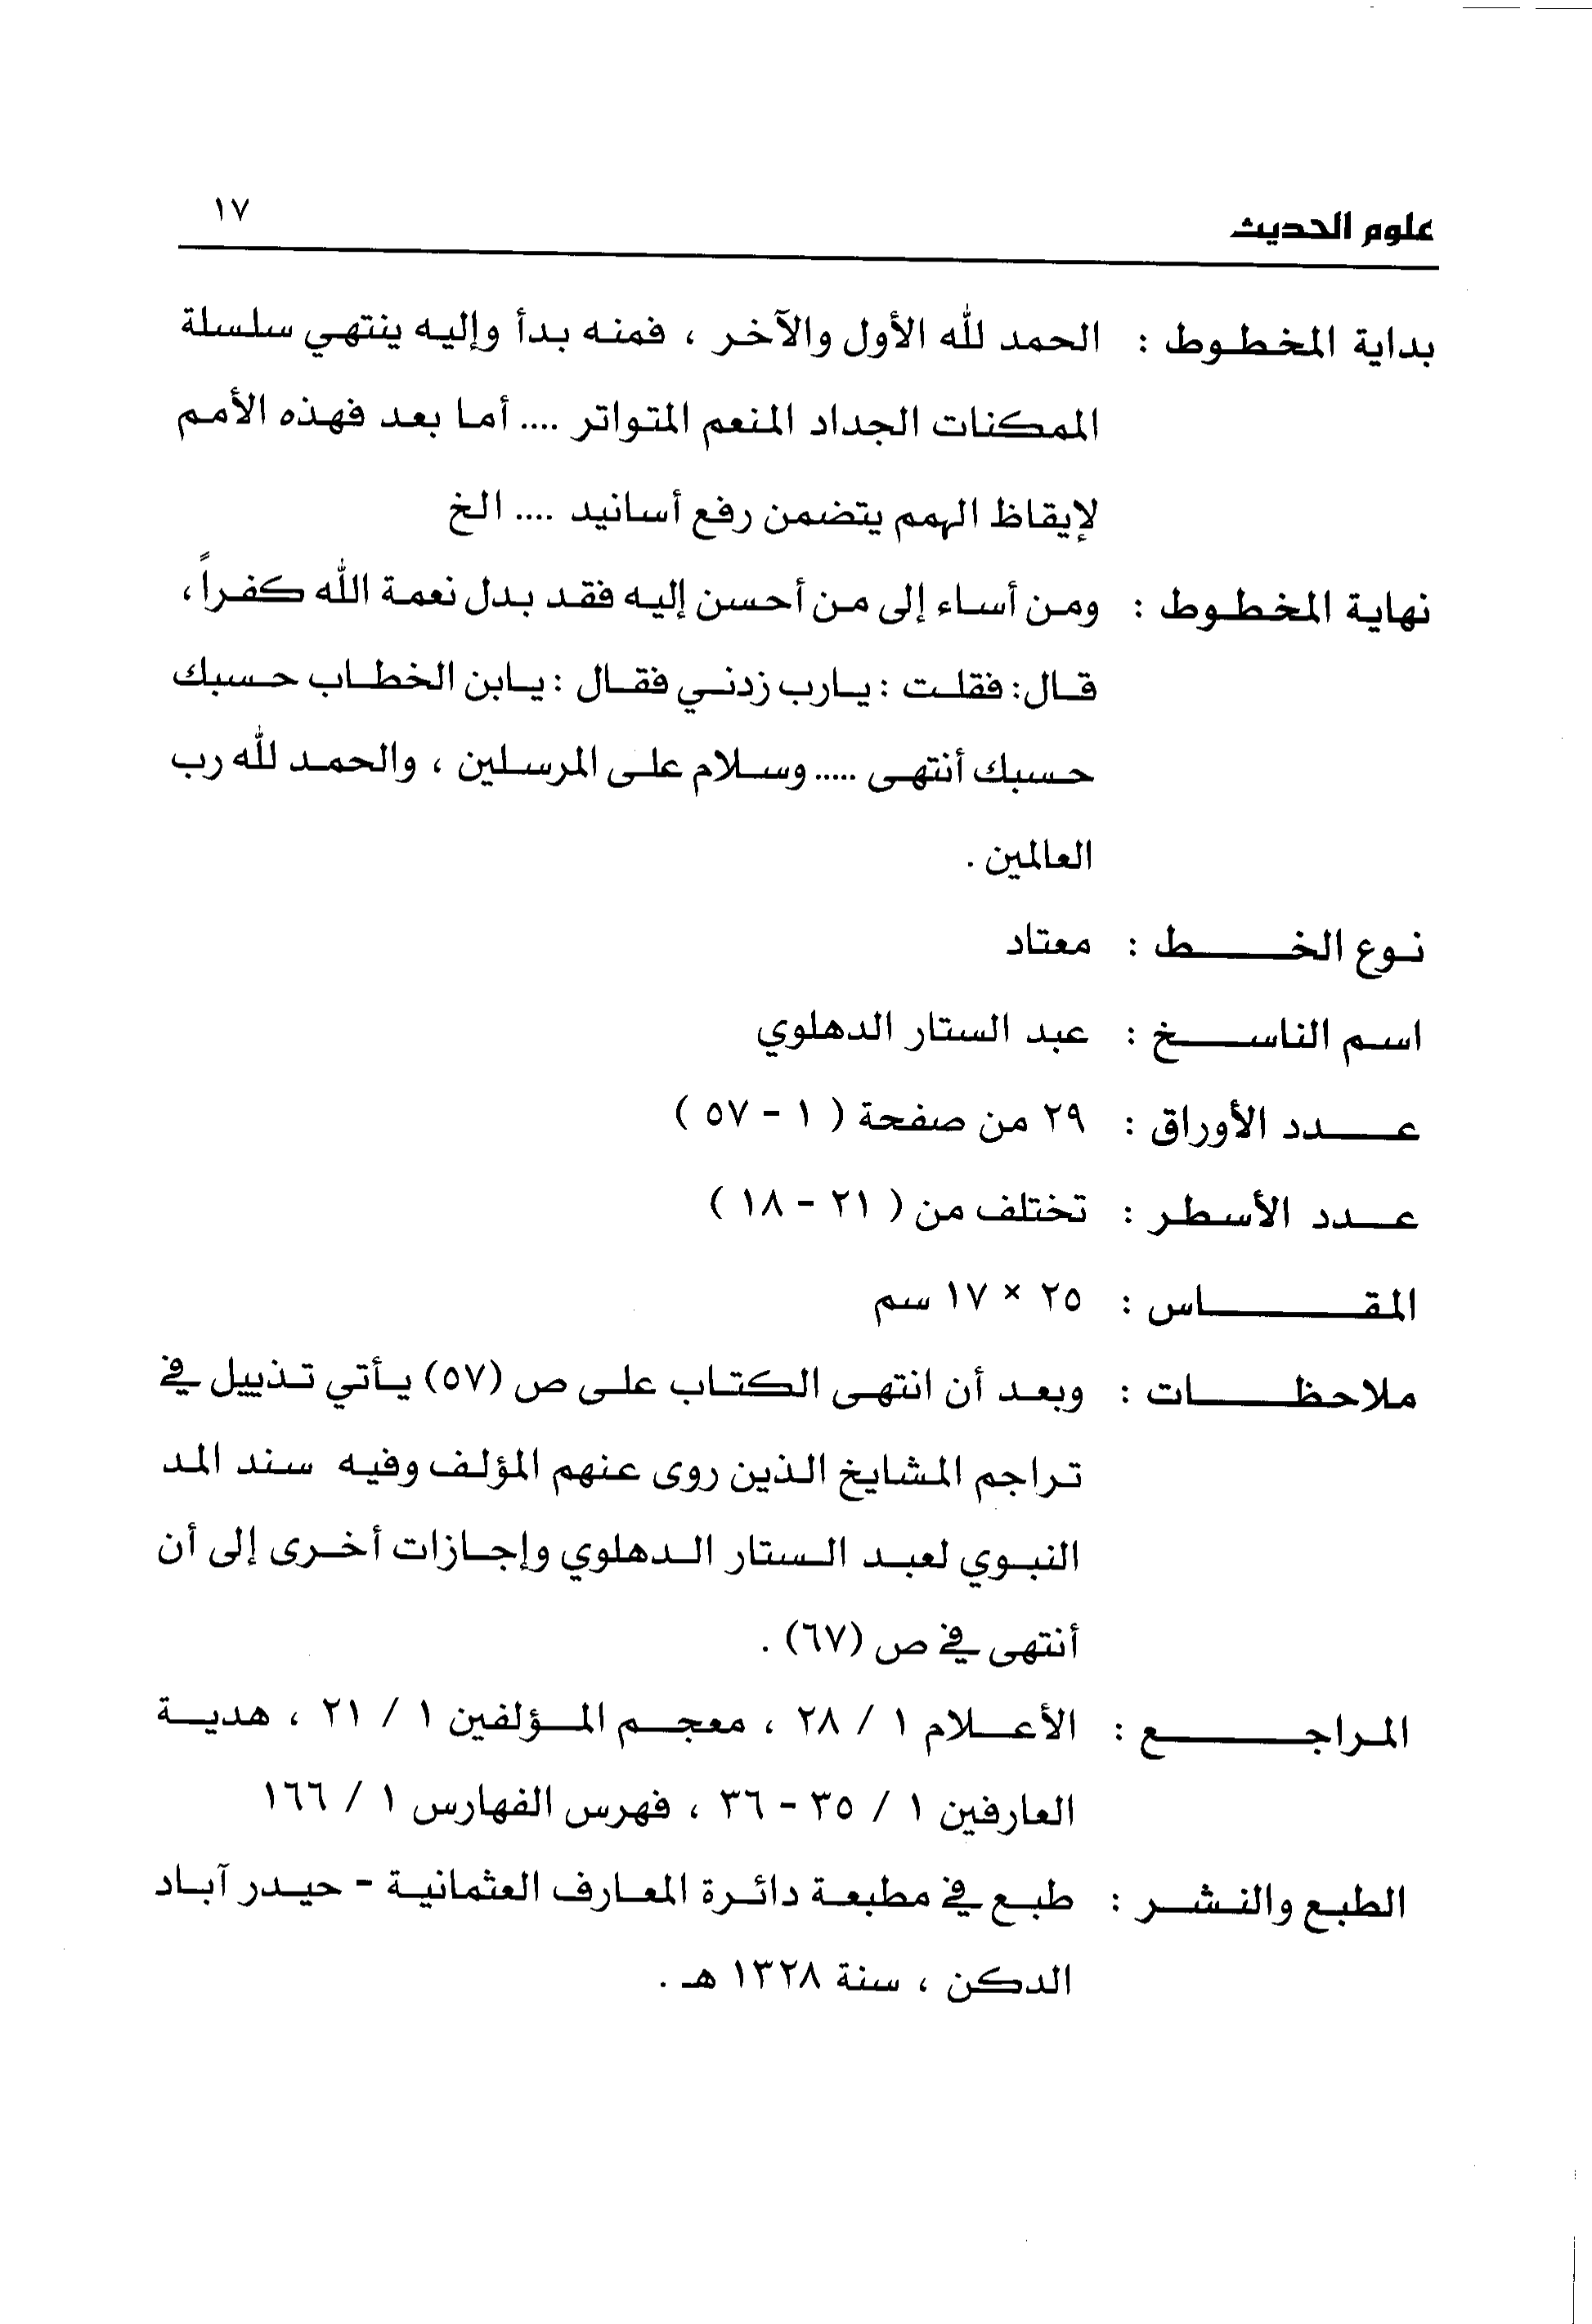 علوم الحديث ١٧
بداية المخطوط : الحمد لله الأول والآخر ، فمنه بدأ وإليه ينتهي سلسلة
الممكنات الجداد المنعم المتواتر .... أما بعد فهذه الأمم
لإيقاظ الهمم يتضمن رفع أسانيد .... الخ
نهاية المخطوط : ومن أساء إلى من أحسن إليه فقد بدل نعمة الله كفراً ،
قال: فقلت : يارب زدني فقال : يابن الخطاب حسبك
حسبك أنتهى ..... وسلام على المرسلين ، والحمد لله رب
العالمين .
نوع الخط : معتاد
اسم الناسخ : عبد الستار الدهلوي
عدد الأوراق : ٢٩ من صفحة ( ١ - ٥٧ )
عدد الأسطر : تختلف من ( ٢١ - ١٨ )
المقاس : ٢٥ × ١٧ سم
ملاحظات : وبعد أن انتهى الكتاب على ص (٥٧) يأتي تذييل في
تراجم المشايخ الذين روى عنهم المؤلف وفيه سند المد
النبوي لعبد الستار الدهلوي وإجازات أخرى إلى أن
أنتهى في ص (٦٧) .
المراجع : الأعلام ١ / ٢٨ ، معجم المؤلفين ١ / ٢١ ، هدية
العارفين ١ / ٣٥ - ٣٦ ، فهرس الفهارس ١ / ١٦٦
الطبع والنشر : طبع في مطبعة دائرة المعارف العثمانية - حيدر آباد
الدكن ، سنة ١٣٢٨ هـ .